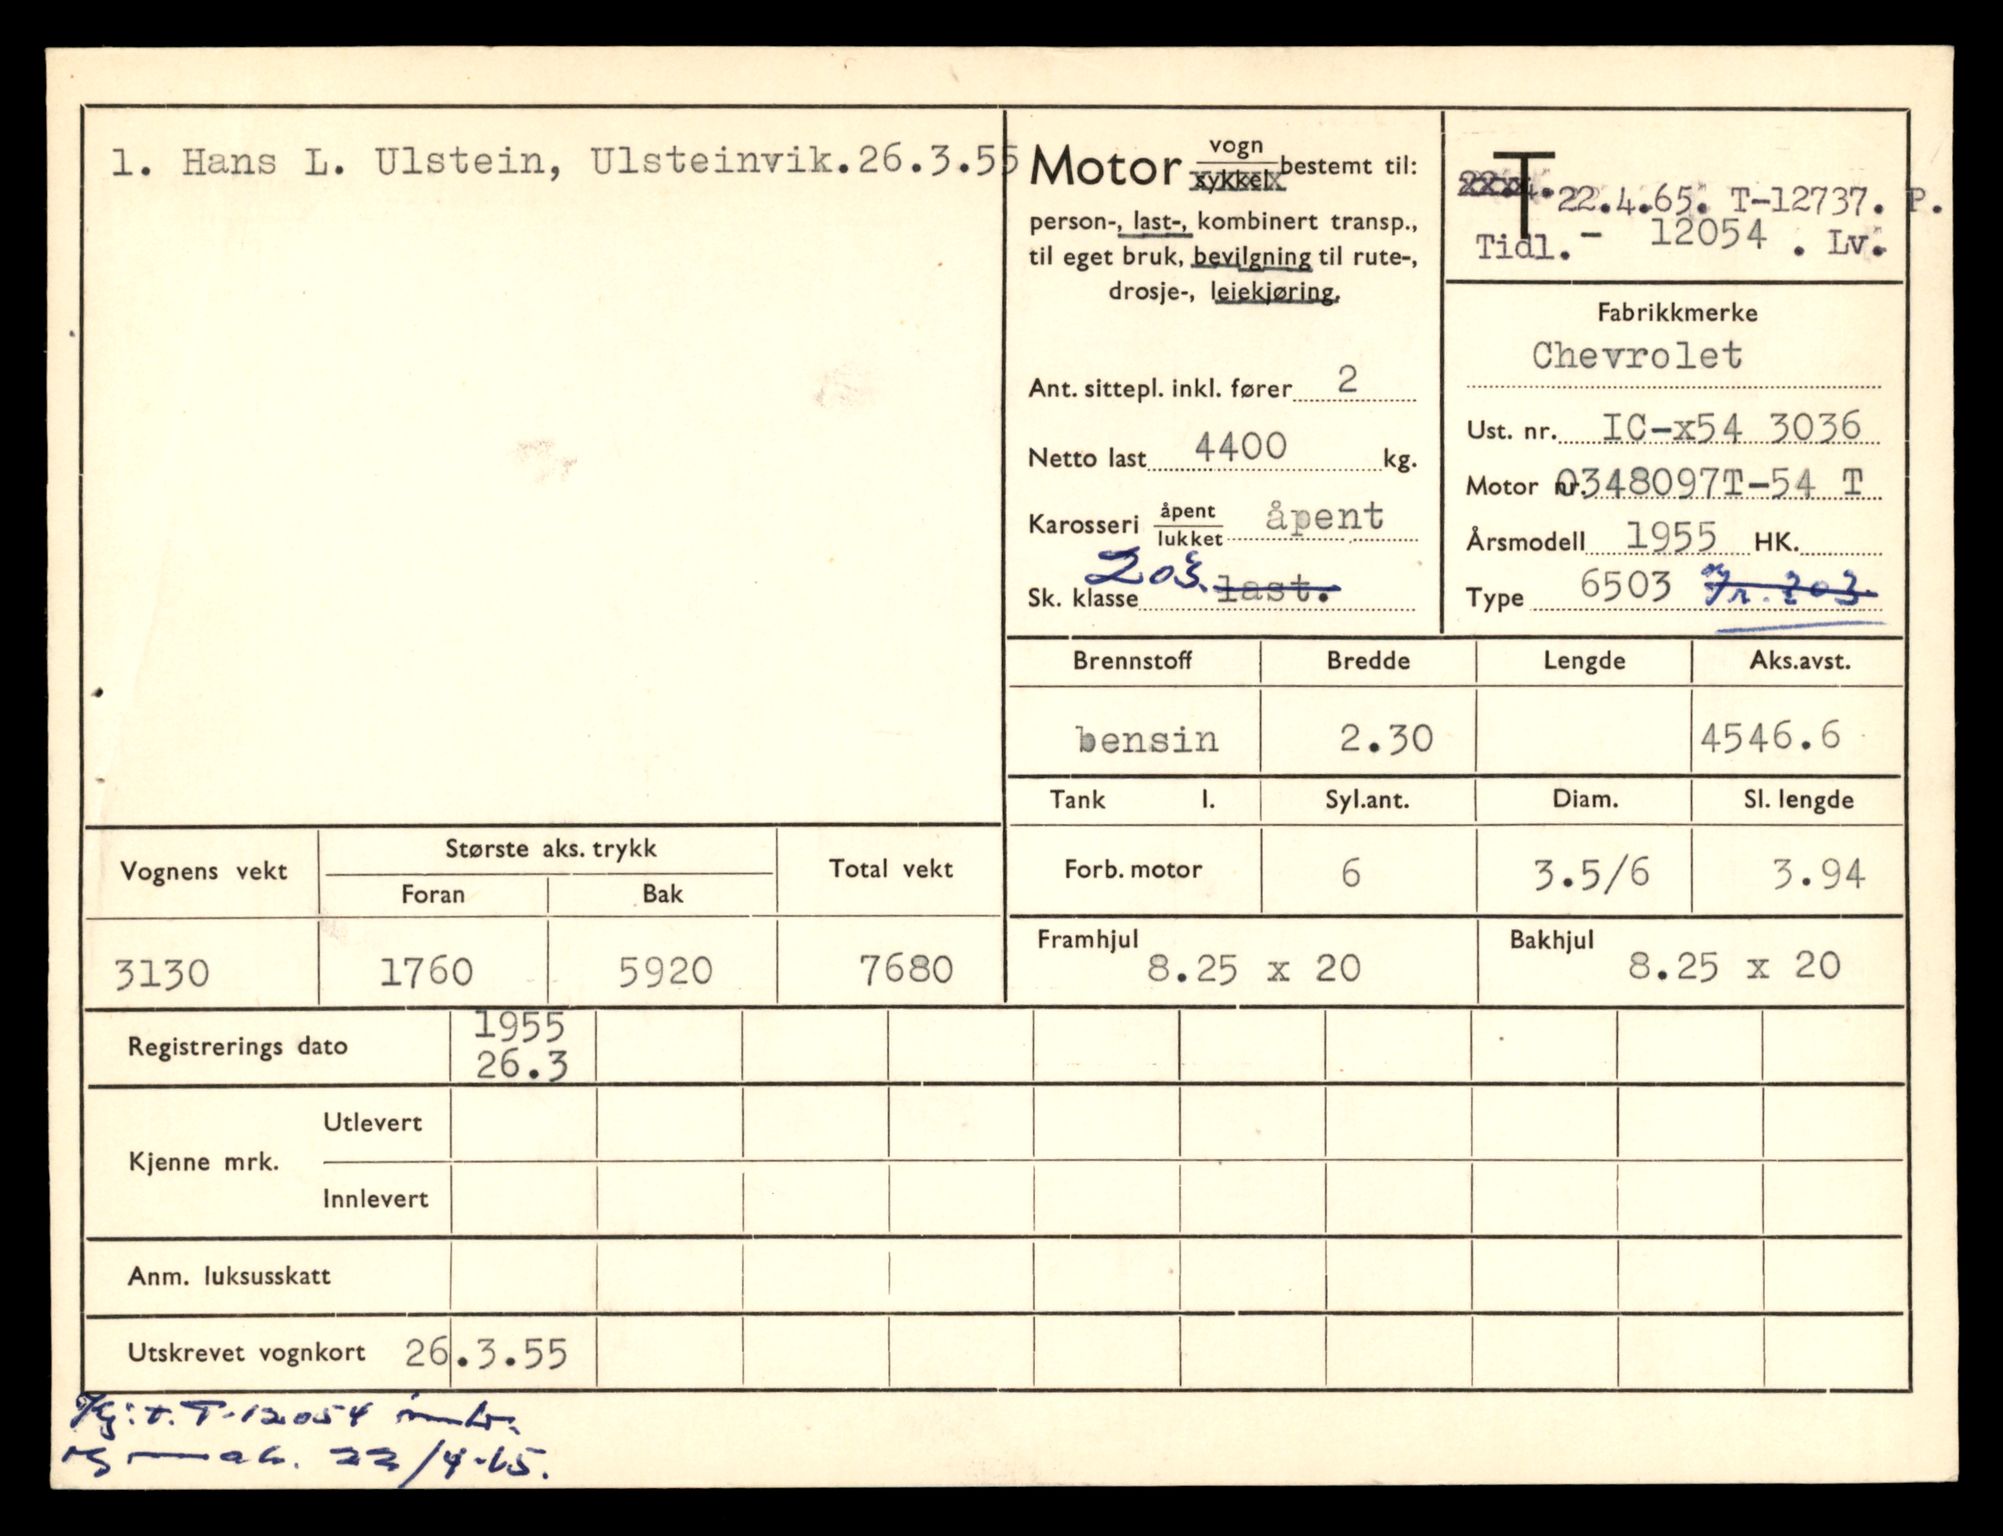 1. Hans L. Ulstein, Ulsteinvik.26.3.55
Motor vogn
sykkel bestemt til:
person-, last-, kombinert transp.,
til eget bruk, bevilgning til rute-,
drosje-, leiekjøring.
Ant. sittepl. inkl. fører 2
Netto last 4400 kg.
Karosseri åpent
lukket åpent
Sk. klasse 203. last.
T
22.4.65. T-12737. P.
Tidl. - 12054 . Lv.
Fabrikkmerke
Chevrolet
Ust. nr. IC-x54 3036
Motor nr. 0348097T-54 T
Årsmodell 1955 HK.
Type 6503 203
Brennstoff Bredde Lengde Aks.avst.
bensin 2.30 4546.6
Tank l. Syl.ant. Diam. Sl. lengde
Forb. motor 6 3.5/6 3.94
Framhjul 8.25 x 20 Bakhjul 8.25 x 20
Vognens vekt Største aks. trykk Total vekt
Foran Bak
3130 1760 5920 7680
Registrerings dato 1955
26.3
Kjenne mrk. Utlevert
Innlevert
Anm. luksusskatt
Utskrevet vognkort 26.3.55
Kj: t. T-12054 innlv.
og mak. 22/4-65.